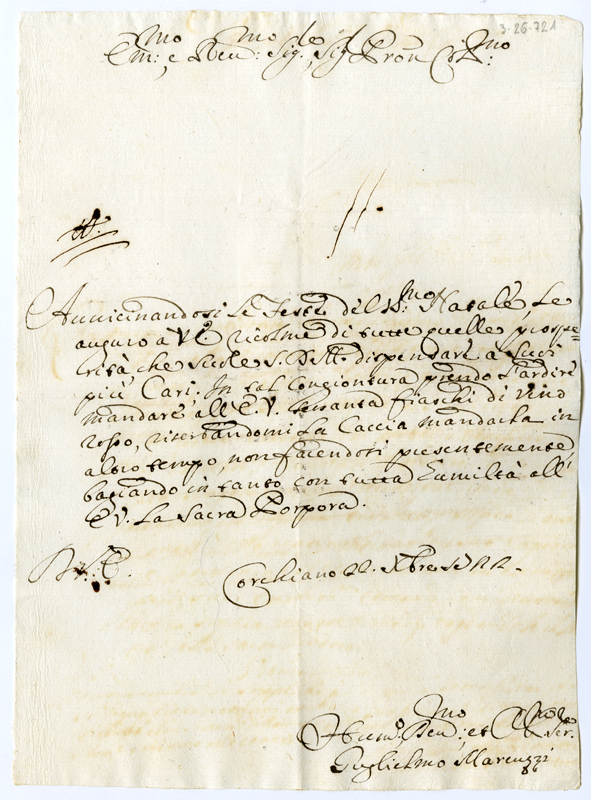 3-26-721
Em:mo e Reu:mo Sig:le Sig:l Pron Col:mo
Auuicinandosi le Feste del S:mo Natale, le
auguro a V. E. ricolme di tutte quelle prospe=
rità, che suole S. D. M. dispensare a suoi
più Cari. In tal Congiontura prendo l'ardire
mandare all'E. V. sessanta fiaschi di vino
rosso, riserbandomi la Caccia mandarla in
altro tempo, non facendosi presentemente,
baciando in tanto con tutta Humiltà all'
E. V. la Sacra Porpora.
Corchiano 22. Xbre
Hum:o Deu:mo et Obl:mo Ser:
Guglielmo Marcuzzi